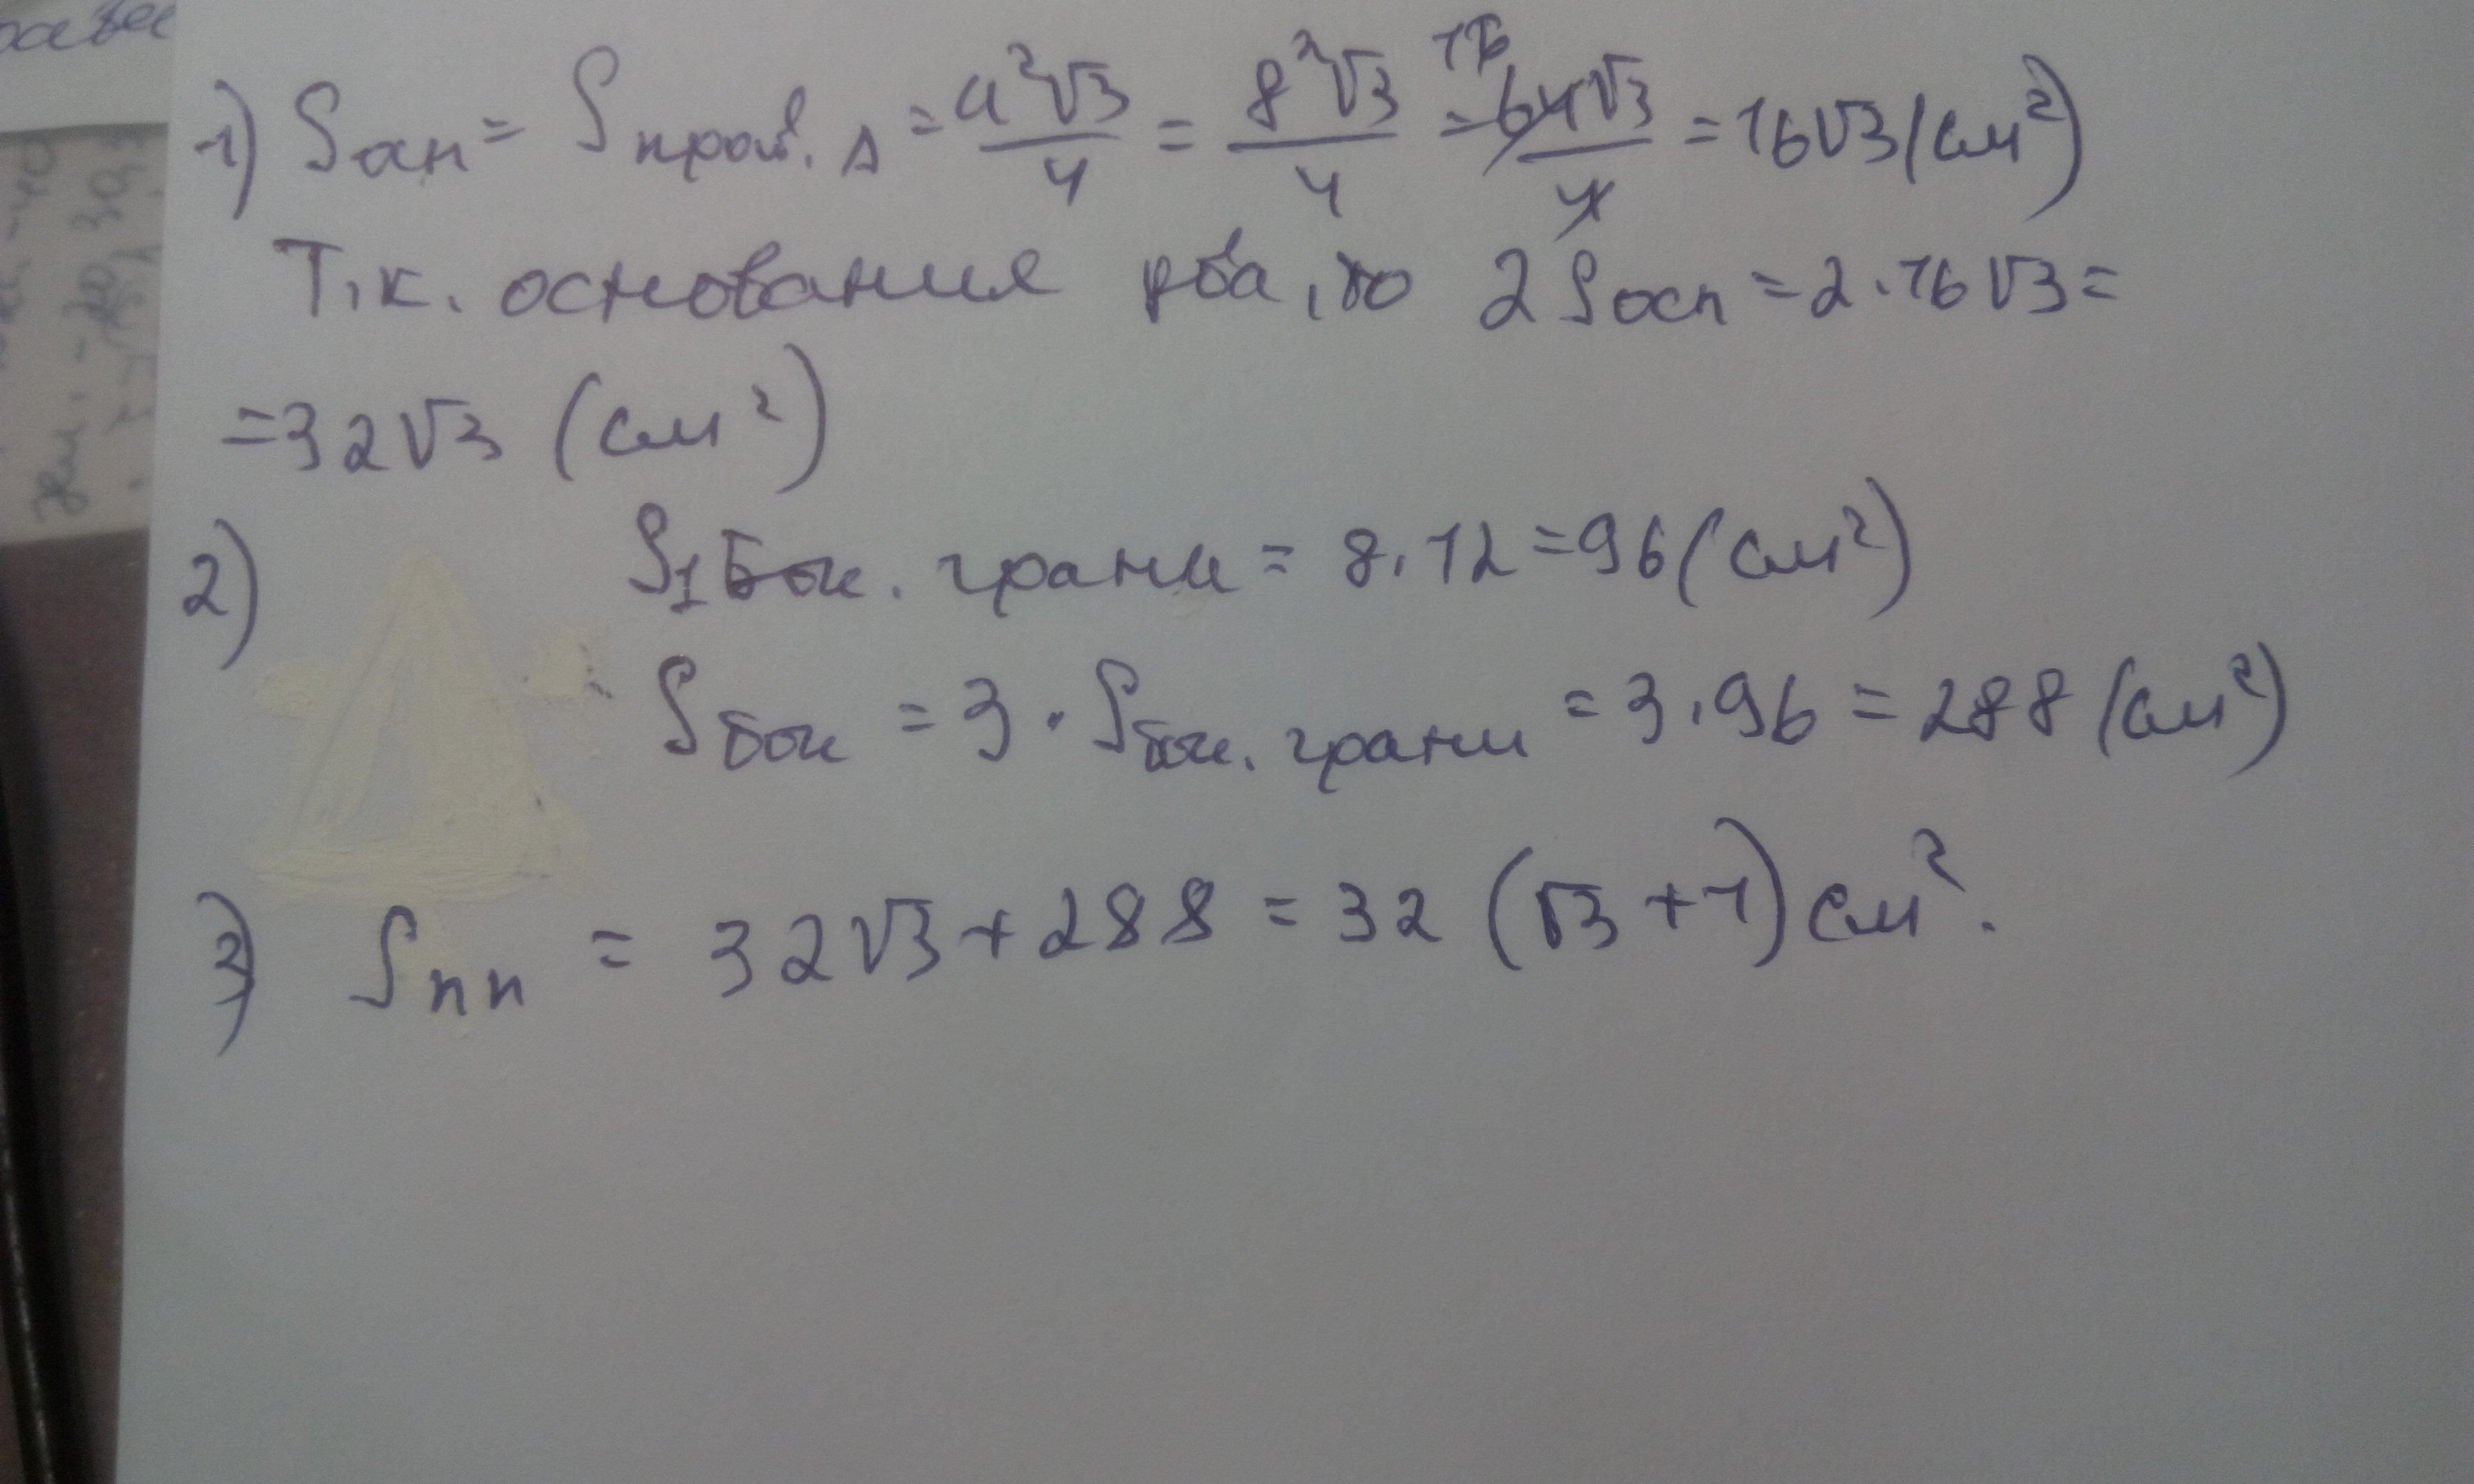 1) Sосн = Sправ. Δ = a²√3/4 = 8²√3/4 = 64√3/4 = 16√3 (см²)
Т.к. основания два, то 2Sосн = 2·16√3 =
= 32√3 (см²)
2) S1 бок. грани = 8·12 = 96 (см²)
Sбок = 3·Sбок. грани = 3·96 = 288 (см²)
3) Sпп = 32√3 + 288 = 32 (√3 + 1) см².